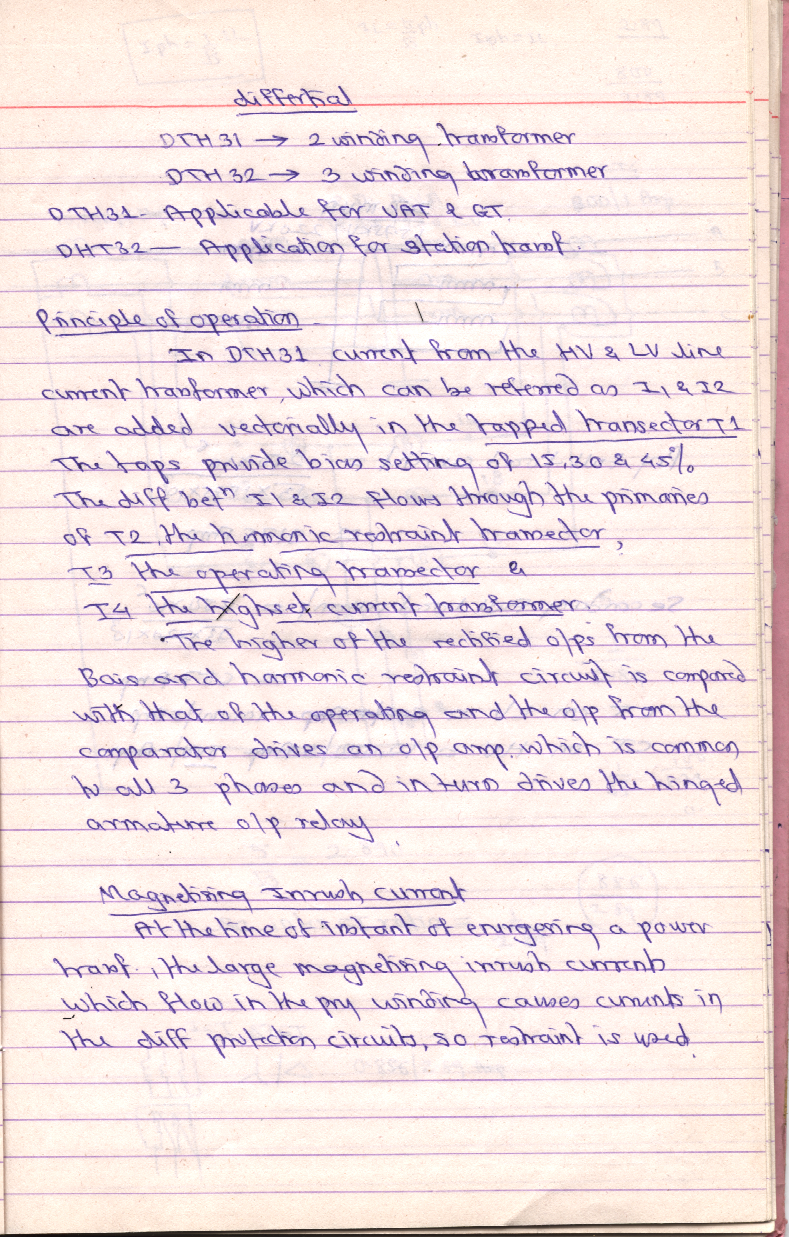 differtial
DTH31 → 2 winding transformer
DTH32 → 3 winding transformer
DTH31 - Applicable for UAT & GT.
DHT32 — Application for station transf.
Principle of operation -
In DTH31 current from the HV & LV line
current transformer, which can be referred as I1 & I2
are added vectorially in the tapped transector T1
The taps provide bias setting of 15, 30 & 45%
The diff betn I1 & I2 flows through the primaries
of T2, the harmonic restraint transector,
T3 the operating transector &
T4 the highset current transformer.
The higher of the rectified o/ps from the
Bais and harmonic restraint circuit is compared
with that of the operating and the o/p from the
comparator drives an o/p amp. which is common
to all 3 phases and in turn drives the hinged
armature o/p relay.
Magnetising Inrush Current
At the time of instant of energering a power
transf., the large magnetising inrush currents
which flow in the pry winding causes currents in
the diff protection circuits, so restraint is used